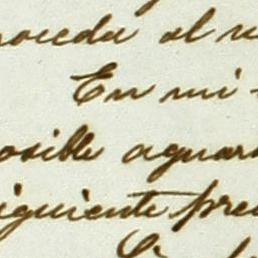 proceda al
En mi
posible aguar
siguiente pre